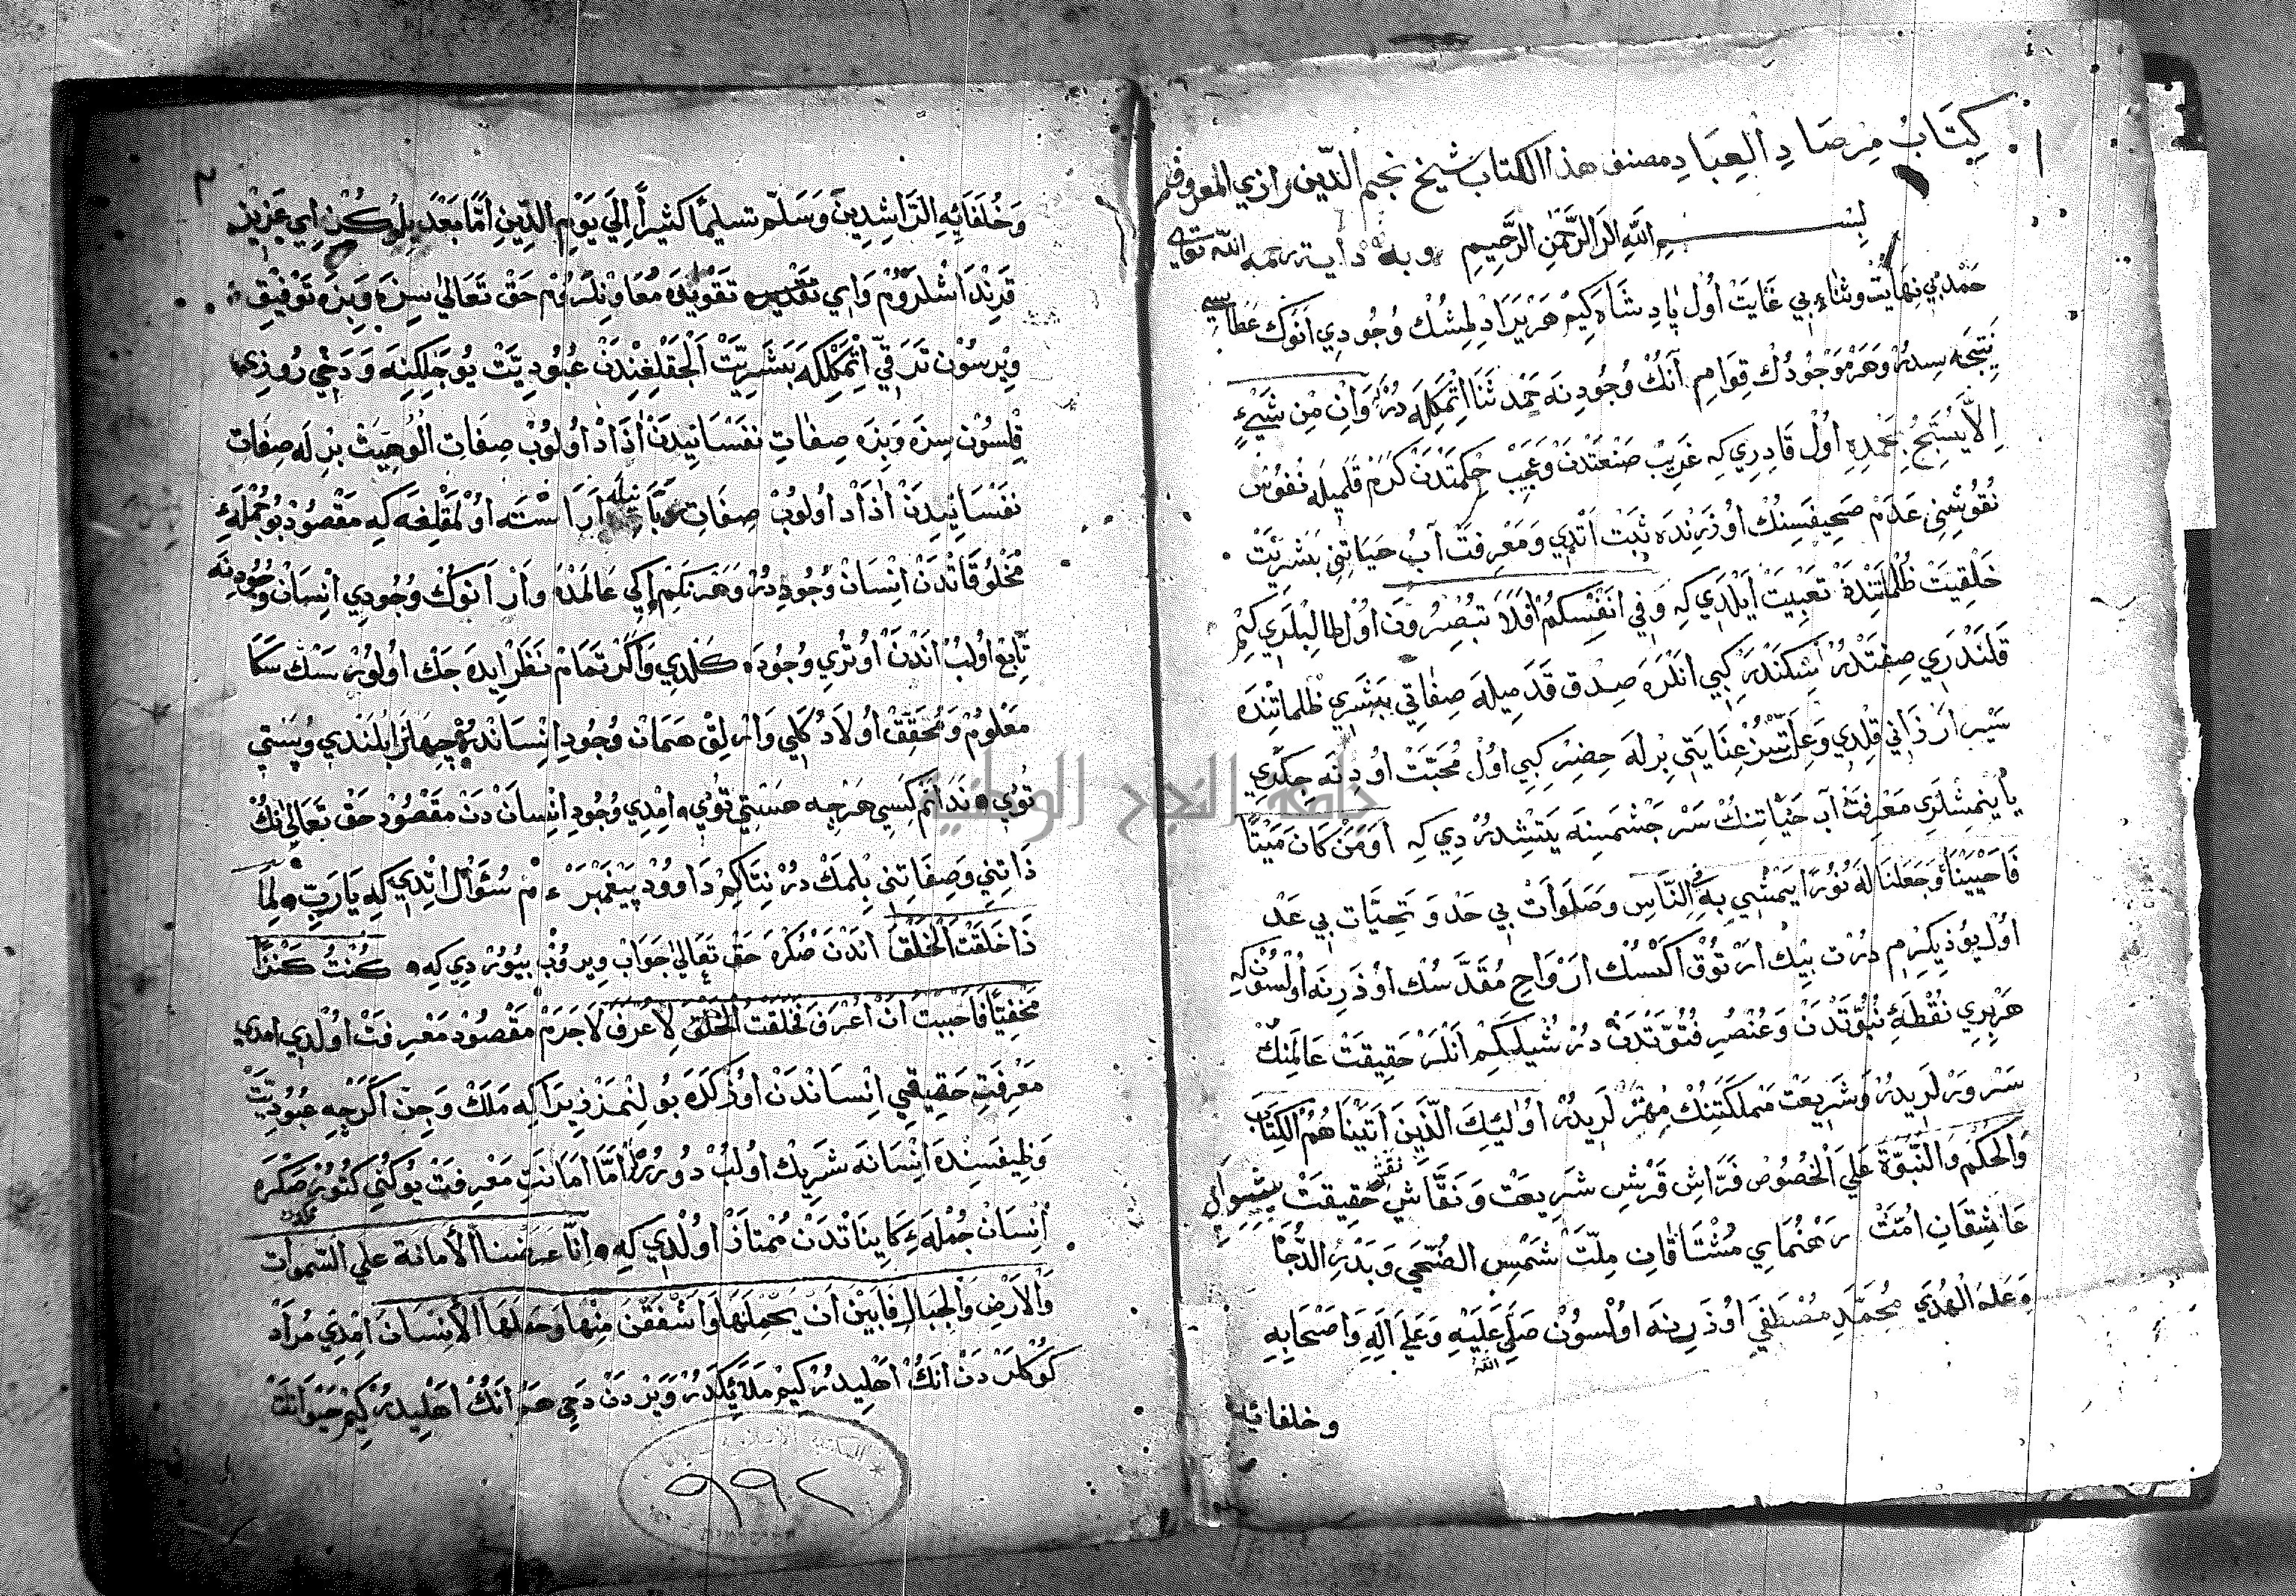 كِتَابُ مِرْصَادِ الْعِبَادِ مصنف هذا الكتاب شيخ نجم الدّين رازي المعروف
بِسْمِ اللّهِ الرَّحْمَنِ الرَّحِيمِ وبه دايه رحمه الله تعالى
حَمْدِ بِي نِهَايَتْ وثَنَاءِ بِي غَايَتْ اُولْ پَادِشَاه كِيمْ هَرْ يَرَادِلْمِشُكْ وُجُودِي اَنُوكْ عَطَاسِي
نَتِيجَه سِدُرْ وَهَرْ مَوْجُودُكْ قِوَامِ آنُكْ وُجُودِنَه حَمْد ثَنَا اِتْمَكِلَه دُرْ وَاِنْ مِنْ شَيْءٍ
اِلَّا يُسَبِّحُ بِحَمْدِهِ اُولْ قَادِرِي كِه غَرِيبْ صَنْعَتْدَنْ وَعَجِيبْ حِكْمَتْدَنْ كَرَمْ قَلَمِيلَه نُفُوسْ
نُقُوشِنِي عَدَمْ صَحِيفَسِنُكْ اُوزَرِنْدَه ثَبَتْ اَتْدِي وَمَعْرِفَتْ آبُ حَيَاتِنِي بَشَرِيَّتْ
خَلْقِيَتْ ظُلُمَاتِنْدَه تَعْبِيَتْ اَيْلَدِي كِه وَفِي اَنْفُسِكُمْ اَفَلَا تُبْصِرُونَ اُولْ طَالِبْلَرِي كِيمْ
قَلَنْدَرِي صِفَتْدُرْ اِسْكَنْدَرْ كِبِي اَنْلَرَه صِدْق قَدَمِيلَه صِفَاتِي بَشَرِي ظُلُمَاتِنْدَه
سَيْر اَرْزَانِي قِلْدِي وَعِلَّتْسِزْ عِنَايَتِي بِرْلَه حِضِرْ كِبِي اُولْ مُحَبَّتْ اُودِنَه جِكَرِي
يَاينْمِشْلَرِي مَعْرِفَتْ آبِ حَيَاتِنُكْ سَرْ جَشْمَسِنَه يَتِشْدُرْدِي كِه اَوَمَنْ كَانَ مَيْتًا
فَاَحْيَيْنَاهُ وَجَعَلْنَا لَهُ نُورًا يَمْشِي بِهِ فِي النَّاسِ وَصَلَوَاتْ بِي حَدْ وَتَحِيَّات بِي عَدْ
اُولْ يُوزِيكِرْمِ دُرْت بِيكْ اَرْتُوقْ اَكْسُكْ اَرْوَاحِ مُقَدَّسُكْ اُوزَرِنَه اُولْسُونْ كِه
هَرْبِرِي نُقْطَهٔ نُبُوَّتْدَنْ وَعُنْصُرِ فُتُوَّتْدَنْ دُرْ شُيْلَكِيمْ اَنْلَرْ حَقِيقَتْ عَالَمِنُكْ
سَرْوَرْلَرِيدُرْ وَشَرِيعَتْ مَمْلَكَتِنُكْ مِهْتَرْلَرِيدُرْ اُولَئِكَ الَّذِينَ اَتَيْنَاهُمُ الْكِتَابَ
وَالْحُكْمَ وَالنُّبُوَّةَ عَلَي الْخُصُوصْ فَرَّاشِ فَرْشِ شَرِيعَتْ وَنَقَّاشِ نقش حَقِيقَتْ پِيشِوَاي
عَاشِقَانِ اُمَّتْ رَهْنُمَايِ مُشْتَاقَانِ مِلَّتْ شَمْسِ الضُّحَي وَبَدْرِ الدُّجَا
وَعَلَمِ الْهُدَي مُحَمَّدِ مُصْطَفَي اُوزَرِينَه اُولْسُونْ صَلَّي الله عَلَيْهِ وَعَلَي آلِهِ وَاَصْحَابِهِ
وخلفائه
وَخُلَفَائِهِ الرَّاشِدِينَ وَسَلَّم تَسْلِيمًا كَثِيرًا اِلَي يَوْمِ الدِّينِ اَمَّا بَعْدُ بِلُرْكُنْ اِي عَزِيزْ
قَرِنْدَاشْلَرُومْ وَاِي تَقْدِيرَه تَقْوِيلَه مُعَاوِنْلَرُومْ حَقْ تَعَالَي سِزَه وَبِزَه تَوْفِيقْ
وِيرْسُونْ تَرَقِّي اِتْمَكْلِكَه بَشَرِيَّتْ اَلْجَقْلِغِنْدَنْ عُبُودِيَّتْ يُوجَلِكِنَه وَدَخِي رُوزِي
قِلْسُونْ سِزَه وَبِزَه صِفَاتِ نَفْسَانِيدَنْ اَزَادْ اُولُوبْ صِفَاتِ اُلُوهِيَتْ بِرْلَه صِفَات
نَفْسَانِيدَنْ اَزَادْ اُولُوبْ صِفَاتِ رَبَّانِيلَه اَرَاسْتَه اُولْمَقْلِغَه كِه مَقْصُودْ بُو جُمْلَهٔ
مَخْلُوقَاتْدَنْ اِنْسَانْ وُجُودِدُرْ وَهَرْ نَكِيمْ اِكِي عَالَمْدَه وَارْ اَنُوكْ وُجُودِي اِنْسَانْ وُجُودِنَه
تَابِعْ اُولُبْ اَنْدَنْ اُوتْرِي وُجُودَه كَلْدِي وَاكَرْ تَمَامْ نَظَرْ اِيدَه جَكْ اُولُورْسَكْ سَكَا
مَعْلُومْ وَمُحَقَّقْ اُولَا دُكَلِي وَارْلِقْ هَمَانْ وُجُودِ اِنْسَانْدُرْ جِهَانْرَا بُلَنْدِي وُپَسْتِي
تُوي نَدَانَمْ كِسِي هَرْچِه هَسْتِي تُوي اِمْدِي وُجُودِ اِنْسَانْ دَنْ مَقْصُودْ حَقْ تَعَالَي نُكْ
ذَاتِنِي وَصِفَاتِنِي بِلْمَكْ دُرْ نِتَاكِيمْ دَاوُودْ پَيْغَمْبَرْ ءم سُؤَالْ اِتْدِي كِه يَارَبِّ لِمَا
ذَا خَلَقْتَ الْخَلْقَ اَنْدَنْ صُكْرَه حَقْ تَعَالَي جَوَابْ وِيرُوبْ بُيُورْدِي كِه كُنْتُ كَنْزًا
مَخْفِيًّا فَاَحْبَبْتُ اَنْ اُعْرَفَ فَخَلَقْتُ الْخَلْقَ لِاُعْرَفَ لَاجَرَمْ مَقْصُودْ مَعْرِفَتْ اُولْدِي اِمْدِي
مَعْرِفَتِ حَقِيقِي اِنْسَانْدَنْ اُوزْكَدَه بُولِنْمَزْ زِيرَاكِه مَلَكْ وَجِنْ اَكَرْچِه عُبُودِيَّتْ
وَظِيفَسِنْدَه اِنْسَانَه شَرِيكْ اُولُبْ دُورُرْ اَمَّا اَمَانَتِ مَعْرِفَتْ يُوكُنِي كُتُورْمَكدن صُكْرَه
اِنْسَانْ جُمْلَهٔ كَايِنَاتْدَنْ مُمْتَازْ اُولْدِي كِه اِنَّا عَرَضْنَا الْاَمَانَةَ عَلَي السَّمَوَاتِ
وَالْاَرْضِ وَالْجِبَالِ فَاَبَيْنَ اَنْ يَحْمِلْنَهَا وَاَشْفَقْنَ مِنْهَا وَحَمَلَهَا الْاِنْسَانُ اِمْدِي مُرَادْ
كَوْكْلَرْدَنْ اَنُكْ اَهْلِيدُرْ كِيمْ مَلَائِكَدُرْ وَيَرْدَنْ دَخِي هَمْ اَنُكْ اَهْلِيدُرْ كِيمْ حَيْوَانَاتْ
٩٩٢
جامعة النجاح الوطنية